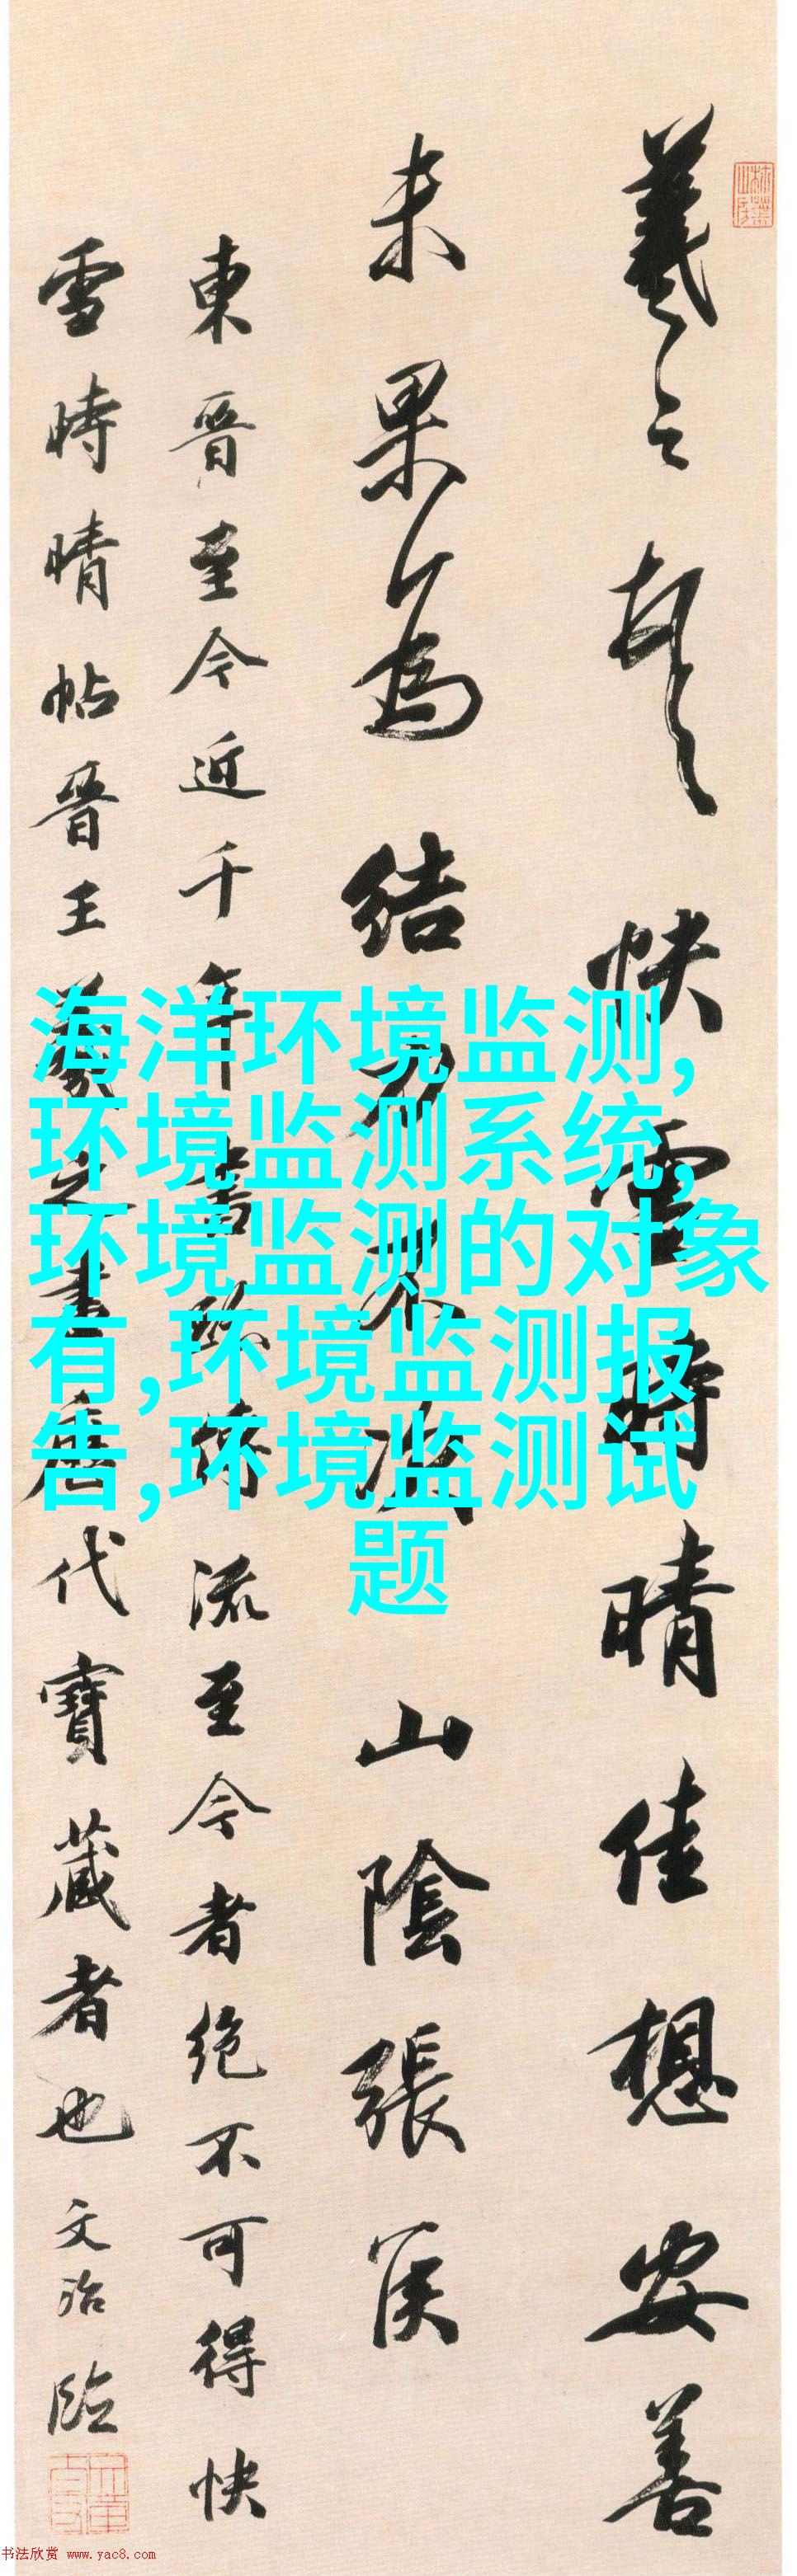 羲之頓首快雪時晴佳想安善
未果為結力不次山陰張侯
東晉至今近千年書跡傳流至今者絕不可得快
雪時晴帖晉王羲之書歷代寶藏者也文治臨
海洋环境监测,
环境监测系统,
环境监测的对象
有,环境监测报
告,环境监测试
题
书法欣赏 www.yac8.com